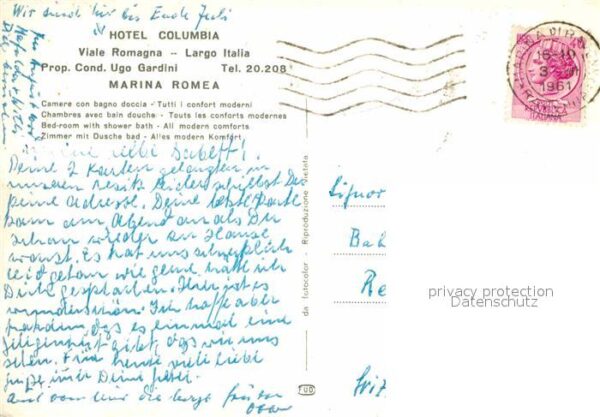 Wir sind hier bis Ende Juli
HOTEL COLUMBIA
Viale Romagna -- Largo Italia
Prop. Cond. Ugo Gardini Tel. 20.208
MARINA ROMEA
Camere con bagno doccia - Tutti i confort moderni
Chambres avec bain douche - Touts les conforts modernes
Bed-room with shower bath - All modern comforts
Zimmer mit Dusche bad - Alles modern Komfort
Meine liebe Babett!
Deine 2 Karten gelangten in
unseren Besitz. Leider schreibst Du
keine Adresse. Deine letzte Karte
kam am Abend an als Du
schon wieder zu Hause
warst. Es hat uns schrecklich
leidgetan wie gerne hätte ich
Dich gesprochen. Hier ist es
wunderschön. Ich hoffe aber
dass es einmal eine
Gelegenheit gibt, dass wir uns
sehen. Für heute viele liebe
Grüße immer Deine
und von mir die
da fotocolor - Riproduzione vietata
1961
ITALIANE
Signor
Bah
Re
privacy protection
Datenschutz